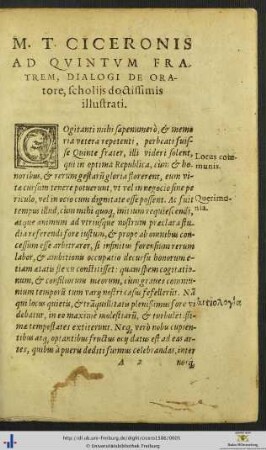 M. T. CICERONIS
AD QVINTVM FRA-
TREM, DIALOGI DE ORA-
tore, scholijs doctissimis
illustrati.
COgitanti mihi sæpenumerò, & memo
ria vetera repetenti, perbeati fuis-
se Quinte frater, illi videri solent,
qui in optima Republica, cùm & ho
noribus, & rerum gestarũ gloria florerent, eum vi
tæ cursum tenere potuerunt, vt vel in negocio sine pe
riculo, vel in ocio cum dignitate esse possent. Ac fuit
tempus illud, cùm mihi quoq; initium requiescendi,
atque animum ad vtriusque nostrum præclara stu-
dia referendi fore iustum, & propè ab omnibus con-
cessum esse arbitrarer, si infinitus forensium rerum
labor, & ambitionis occupatio decursu honorum et
etiam ætatis flexu constitisset: quam spem cogitatio-
num, & consiliorum meorum, cùm graues commu-
nium temporũ tum varij nostri casus fefellerũt. Nã
qui locus quietis, & trãquillitatis plenissimus fore vi
debatur, in eo maximè molestiarũ, & turbulentissi-
mæ tempestates extiterunt. Neq; verò nobis cupien-
tibus atq; optantibus fructus ocij datus est ad eas ar-
tes, quibus à pueris dediti fuimus celebrandas, inter
A 2 nosq;
Locus com-
munis.
Querimo-
nia.
αἰτιολογία
http://dl.ub.uni-freiburg.de/diglit/cicero1588/0005
© Universitätsbibliothek Freiburg